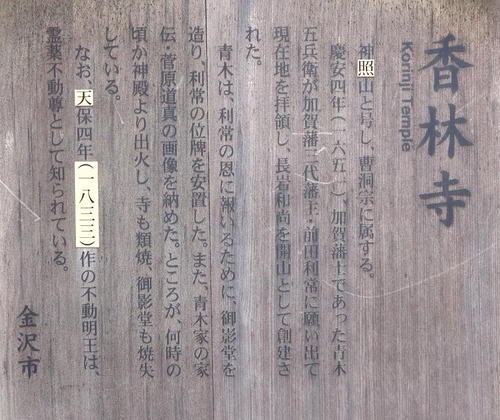 香林寺
Korinji Temple
神照山と号し、曹洞宗に属する。
慶安四年(一六五一)、加賀藩士であった青木
五兵衛が加賀藩二代藩主・前田利常に願い出て
現在地を拝領し、長岩和尚を開山として創建さ
れた。
青木は、利常の恩に報いるために、御影堂を
造り、利常の位牌を安置した。また、青木家の家
伝・菅原道真の画像を納めた。ところが、何時の
頃か神殿より出火し、寺も類焼、御影堂も焼失
している。
なお、天保四年(一八三三)作の不動明王は、
霊薬不動尊として知られている。
金沢市